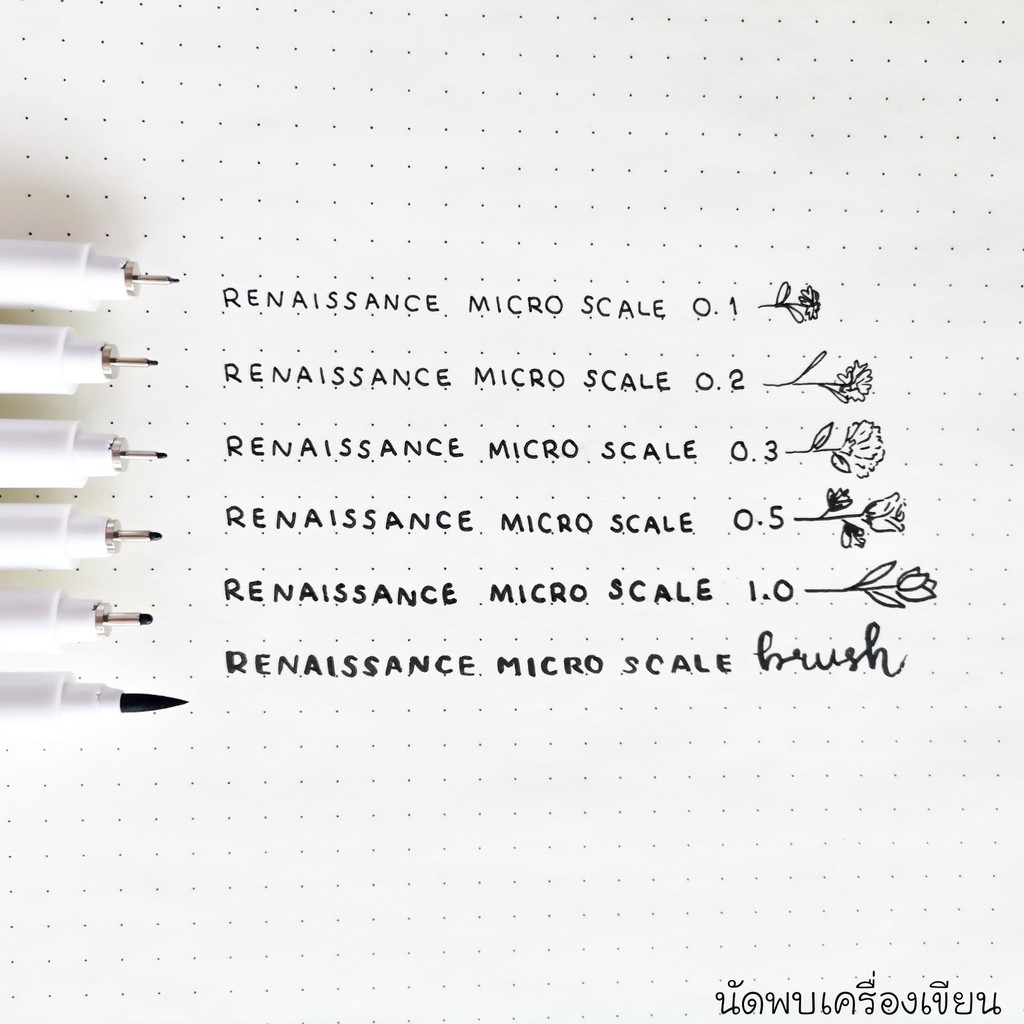 RENAISSANCE MICRO SCALE 0.1
RENAISSANCE MICRO SCALE 0.2
RENAISSANCE MICRO SCALE 0.3
RENAISSANCE MICRO SCALE 0.5
RENAISSANCE MICRO SCALE 1.0
RENAISSANCE MICRO SCALE brush
นัดพบเครื่องเขียน